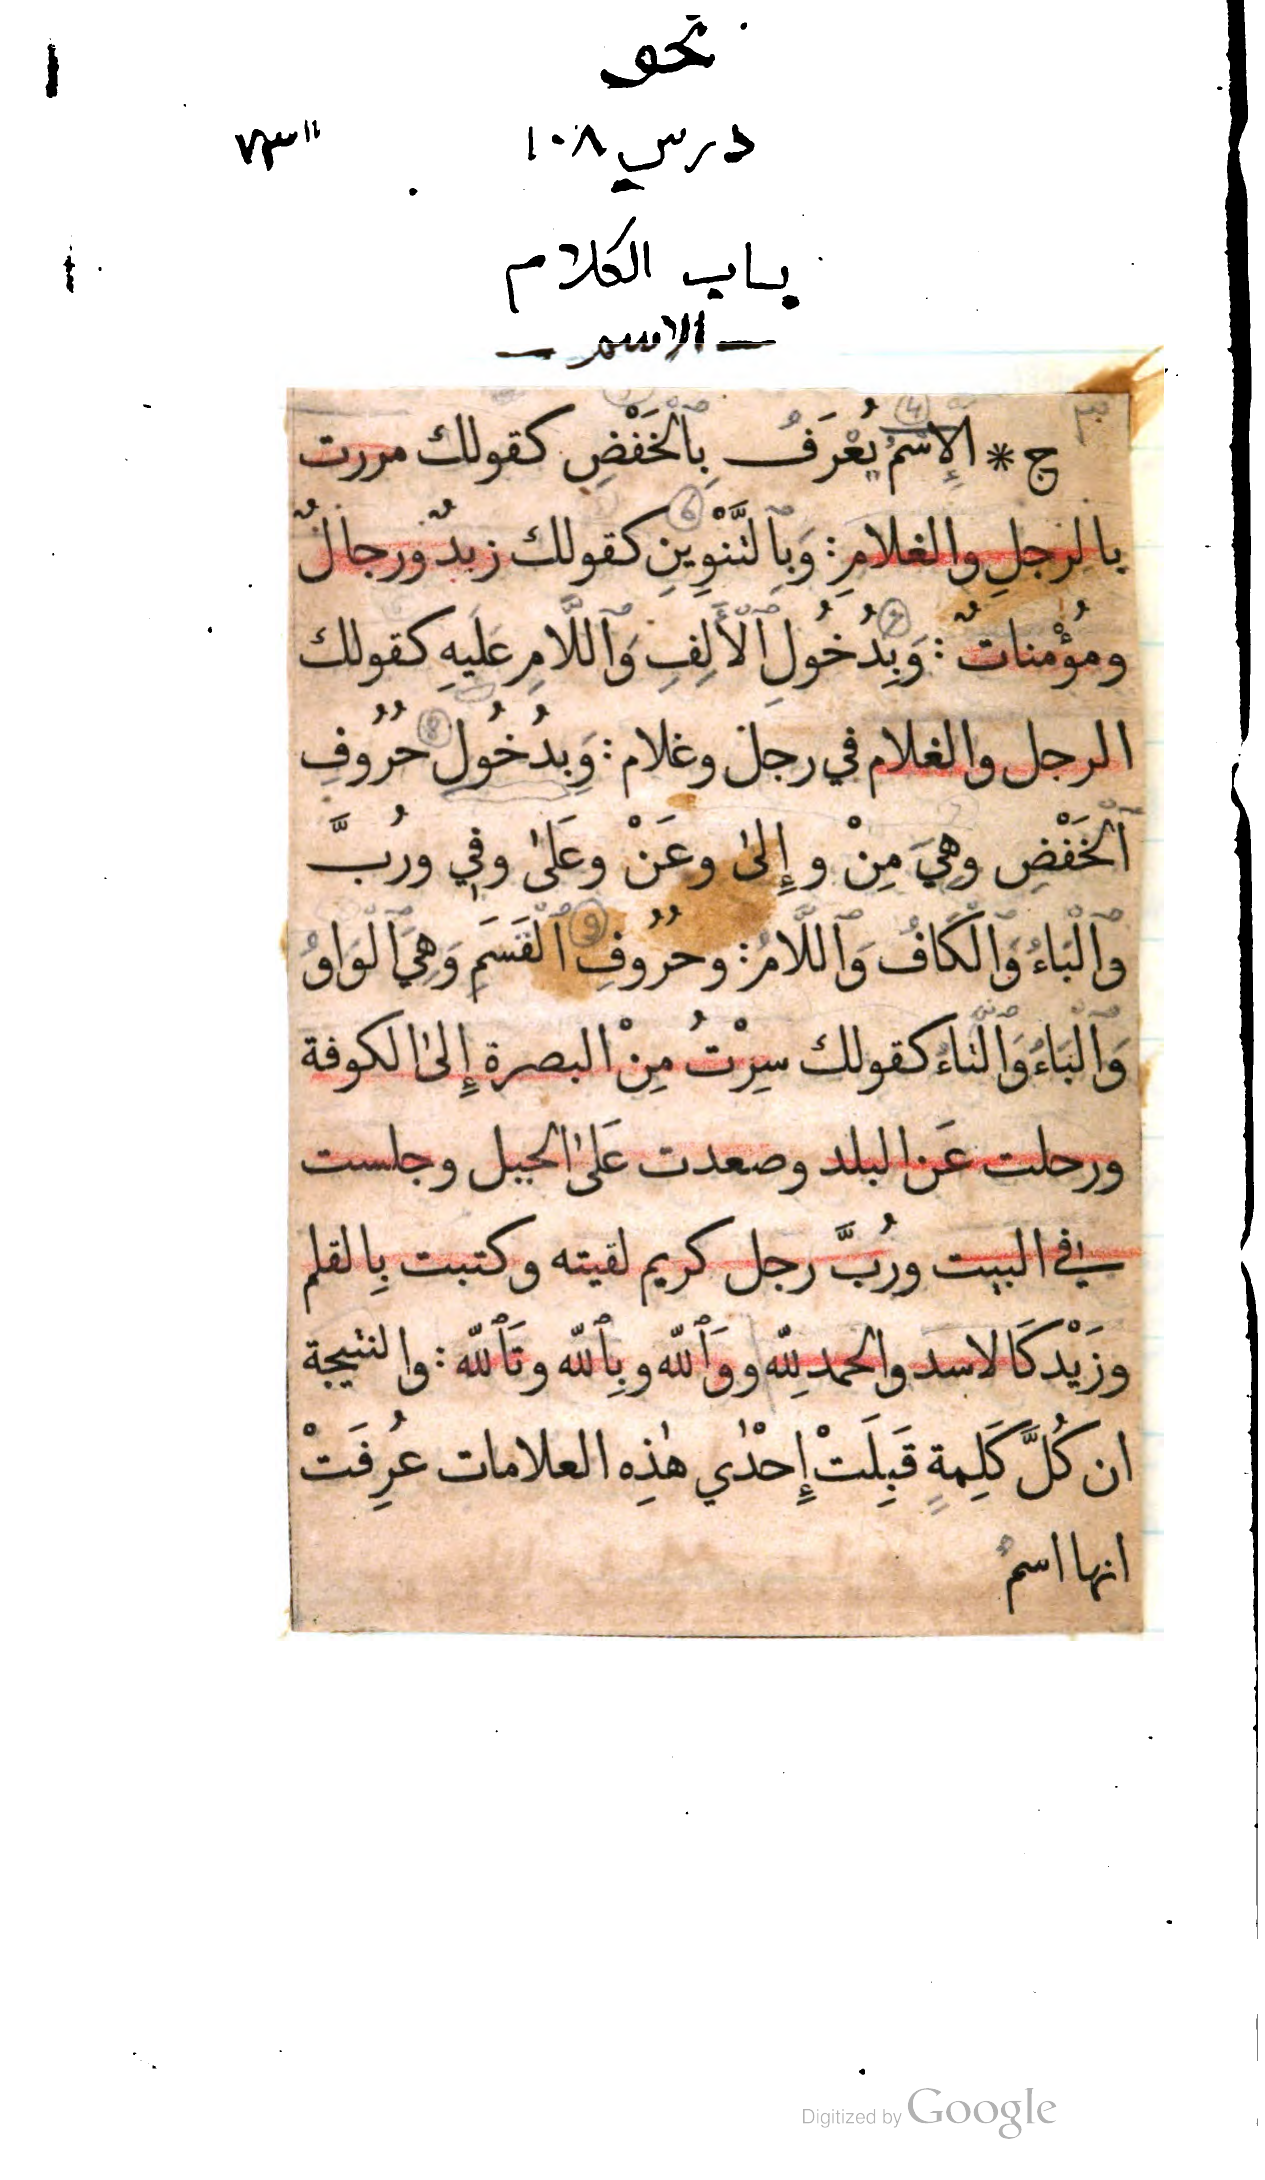 نحو
درس ١٠٨
باب الكلام
— الاسم —
ج * الإِسْمُ يُعْرَفُ بِٱلْخَفْضِ كقولك مررت
بالرجلِ والغلامِ : وَبِٱلتَّنْوِينِ كقولك زيدٌ ورجالٌ
ومُؤْمناتٌ : وَبِدُخُولِ ٱلْأَلِفِ وَٱللَّامِ عَلَيهِ كقولك
الرجل والغلام في رجل وغلام : وَبِدُخُولِ حُرُوفِ
ٱلْخَفْضِ وهِيَ مِنْ وإِلىٰ وعَنْ وعَلىٰ وفِي ورُبَّ
وٱلْبَاءُ وَٱلْكَافُ وَٱللَّامُ : وحُرُوفِ ٱلْقَسَمِ وَهِيَ ٱلْوَاوُ
وَٱلْبَاءُ وَٱلتاءُ كقولك سِرْتُ مِنْ البصرة إِلىٰ الكوفة
ورحلت عَن البلد وصعدت عَلىٰ الجبل وجلست
في البيت ورُبَّ رجل كريم لقيته وكتبت بِالقلم
وزَيْد كَالاسد والحمد لِلّٰه ووَٱللّٰه وبِٱللّٰه وتَٱللّٰه : والنتيجة
ان كُلَّ كَلِمةٍ قَبِلَتْ إِحْدٰي هٰذِه العلامات عُرِفَتْ
انها اسمٌ
Digitized by Google